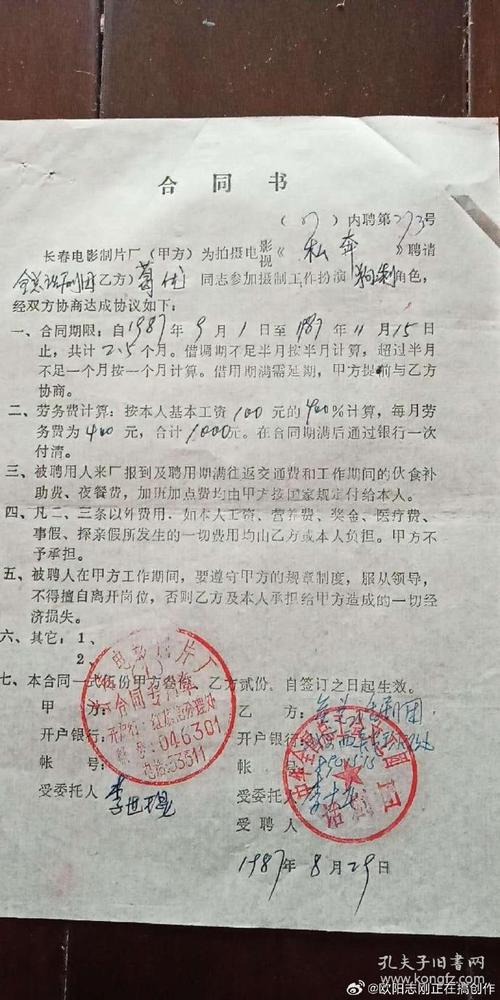 合同书
(87)内聘第273号
长春电影制片厂（甲方）为拍摄电影视《私奔》聘请
全总话剧团（乙方）葛优同志参加摄制工作扮演 角色，
经双方协商达成协议如下：
一、合同期限：自1987年9月1日至1987年11月15日
止，共计2.5个月。借调期不足半月按半月计算，超过半月
不足一个月按一个月计算。借用期满需延期，甲方提前与乙方
协商。
二、劳务费计算：按本人基本工资100元的400%计算，每月劳
务费为400元，合计1000元。在合同期满后通过银行一次
付清。
三、被聘用人来厂报到及聘用期满往返交通费和工作期间的伙食补
助费、夜餐费，加班加点费均由甲方按国家规定付给本人。
四、凡二、三条以外费用．如本人工资、营养费、奖金、医疗费、
事假、探亲假所发生的一切费用均由乙方或本人负担。甲方不
予承担。
五、被聘人在甲方工作期间，要遵守甲方的规章制度，服从领导，
不得擅自离开岗位，否则乙方及本人承担给甲方造成的一切经
济损失。
六、其它：1、
2、
七、本合同一式伍份甲方叁份，乙方贰份。自签订之日起生效。
甲方：
开户银行：
帐号：
受委托人
电影制片厂
合同专用章
046301
电话：53311
乙方：全总话剧团
开户银行：
帐号：
受委托人
受聘人
话剧团
1987年8月29日
孔夫子旧书网
www.kongfz.com
@欧阳志刚正在搞创作